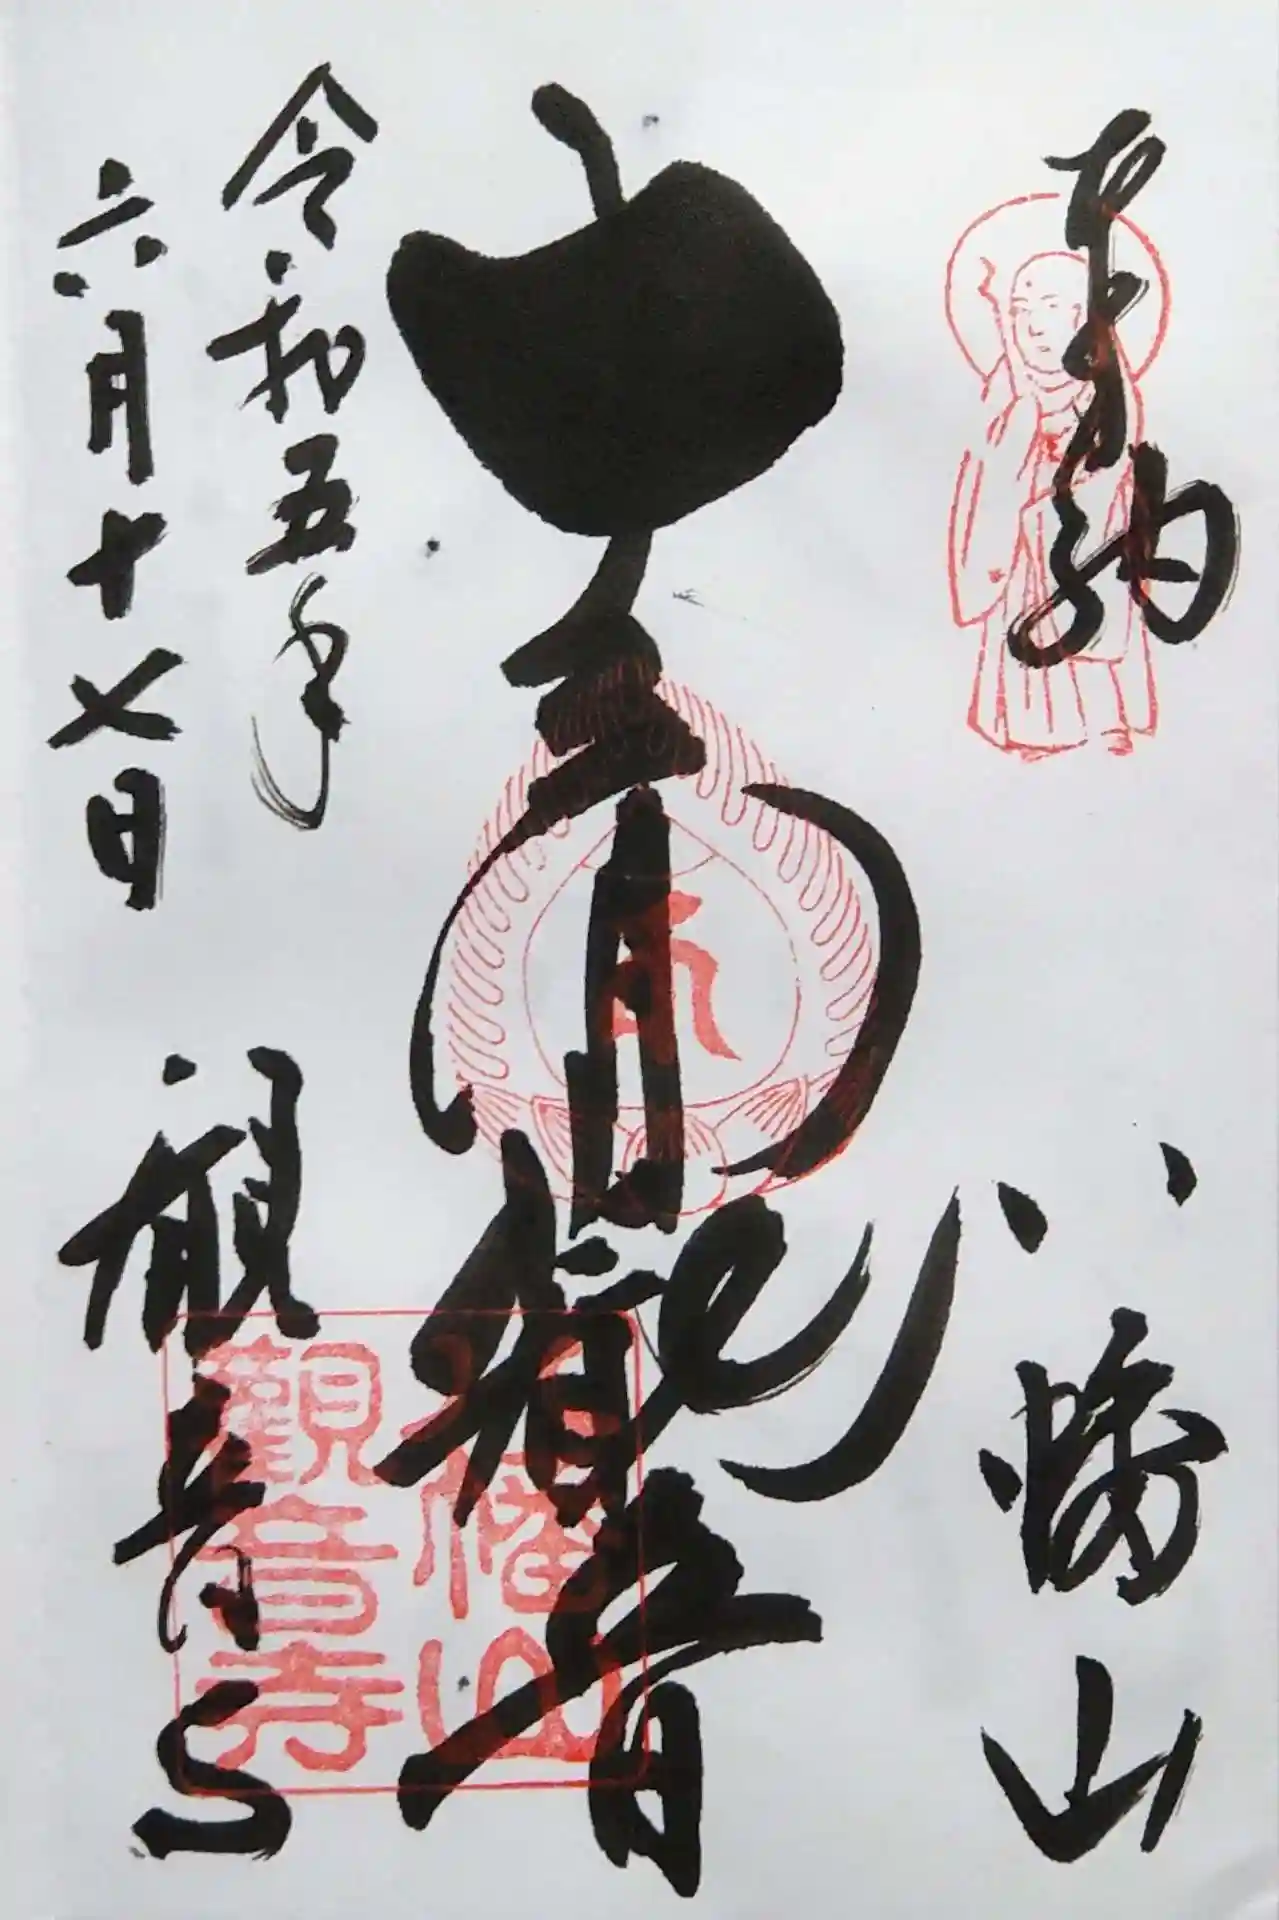 奉納
八幡山
聖観音
令和五年
六月十七日
観音寺
八幡山
觀音寺